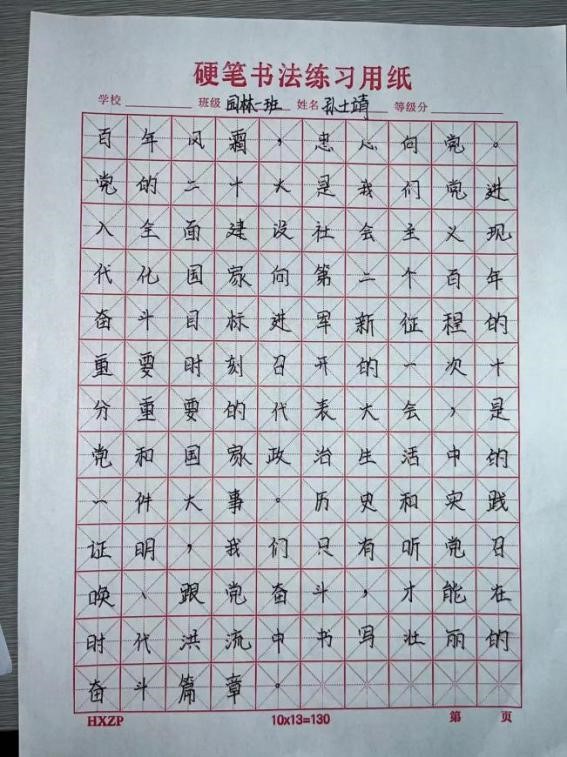 硬笔书法练习用纸
学校 班级 园林一班 姓名 孙士靖 等级分
百年风霜，忠心向党。
党的二十大是我们党进
入全面建设社会主义现
代化国家向第二个百年
奋斗目标进军新征程的
重要时刻召开的一次十
分重要的代表大会，是
党和国家政治生活中的
一件大事。历史和实践
证明，我们只有听党召
唤、跟党奋斗，才能在
时代洪流中书写壮丽的
奋斗篇章。
HXZP 10x13=130 第 页